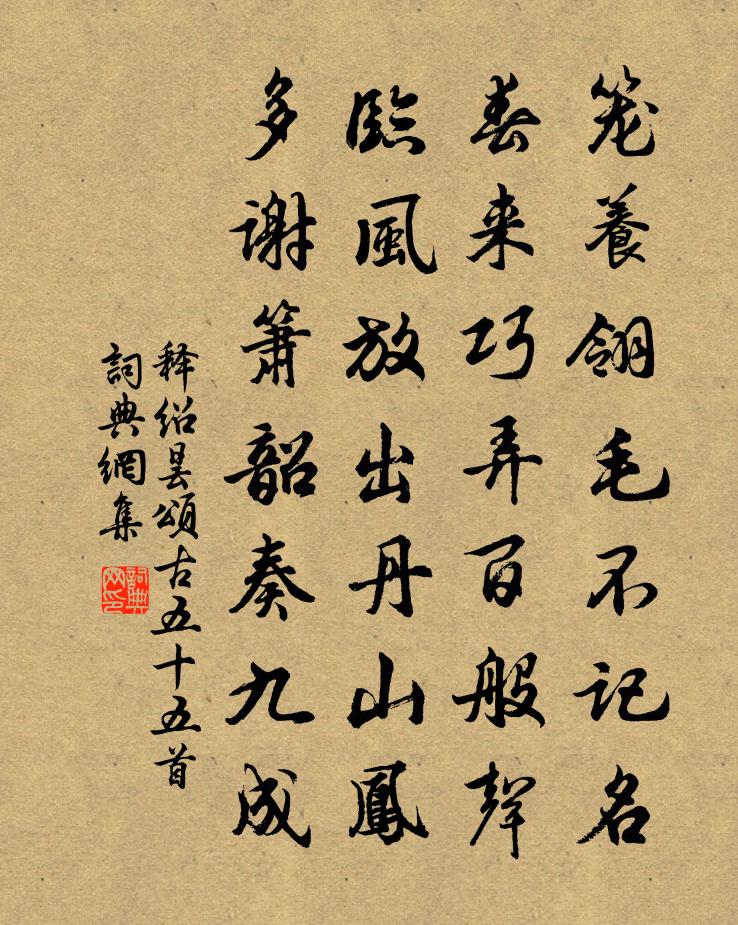 笼養翎毛不记名
春来巧弄百般聲
臨風放出丹山鳳
多谢箫韶奏九成
释绍昙頌古五十五首
詞典網集
詞典网印